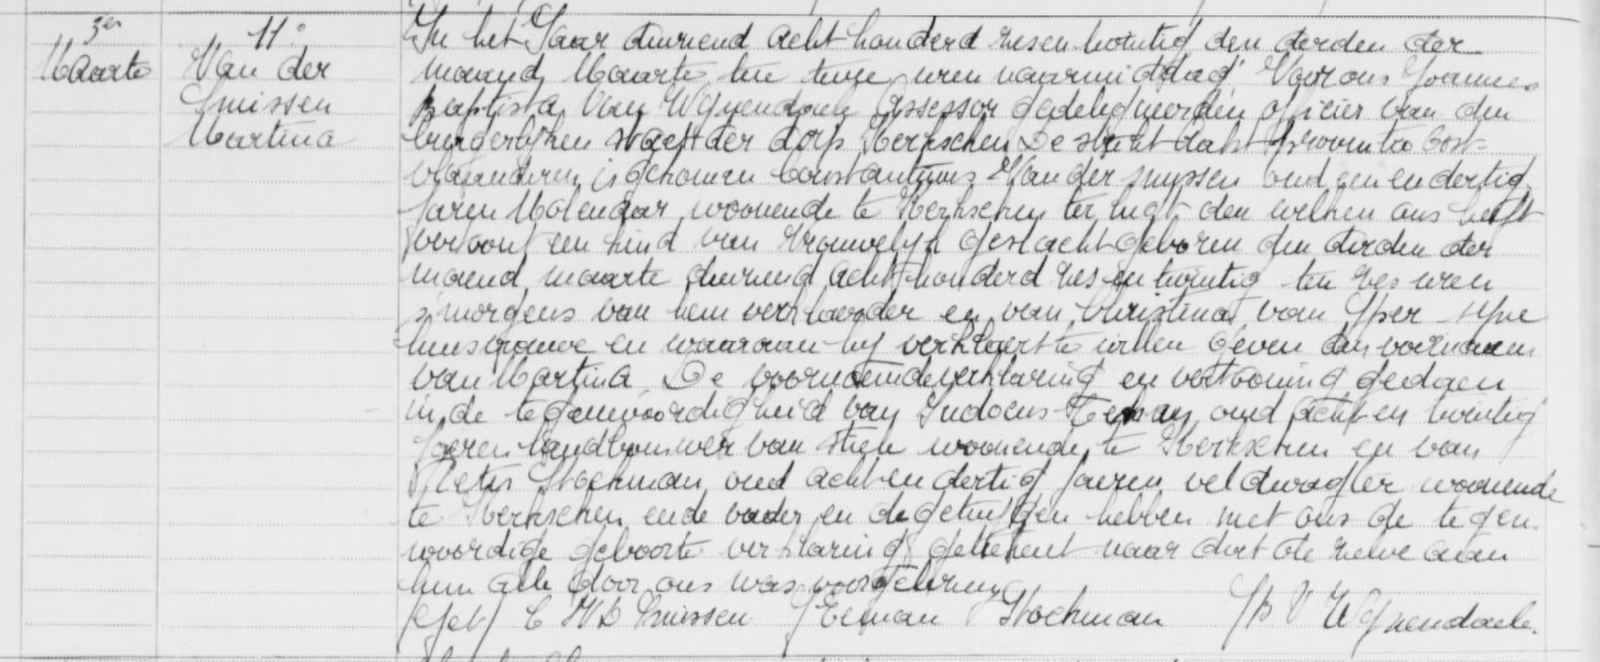 3en
Maarte
11°
Van der
Smissen
Martina
In het Jaar duizend acht honderd zesentwintig den derden der
maand Maarte ten uren naarmiddag Voor ons Joannes
Baptista Van Wynendaele Assessor gedeligueerden officier van den
burgerlyken staet der dorp Kerkschen De Provintie Oost-
vlaanderen is gekomen Constantinus Van der smyssen oud en endertig
Jaren Molenaar woonende te Kerkschen den welken ons heeft
vertoont een kind van vrouwelyk geslacht geboren den derden der
maend maarte duizend acht honderd zes en twintig ten zes uren
s'morgens van hem verklaerder en van Christina van Yper syne
huisvrouwe en waaraan hy verklaert te willen geven den voornaem
van Martina De voornoemde verklaring en vertooning gedaen
in de tegenwoordigheid van Judocus oud acht en twintig
Jaeren landbouwer van styl woonende te Kerkschen en van
Pieter Stockman oud acht en dertig Jaeren veldwagter woonende
te Kerkschen ende vader en de getuigen hebben met ons de tegen-
woordige geboorte verklaring geteekent naar dat de zelve aan
hun alle door ons was voorgelezen
(Get) C V D Smissen Stockman JB V Wynendaele.